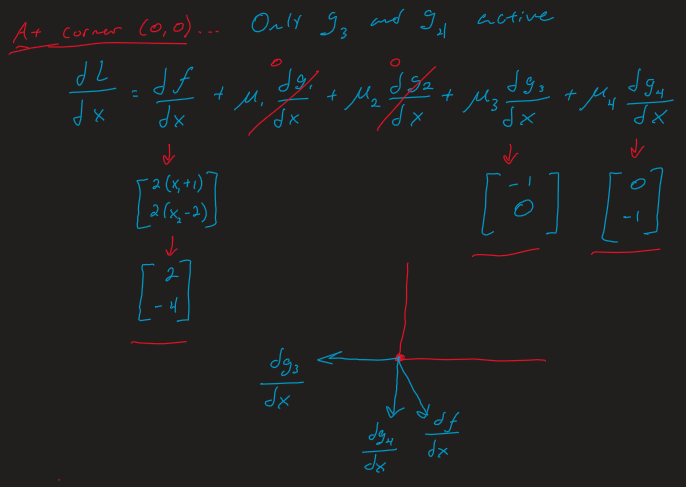 At corner (0,0)... Only g₃ and g₄ active
0 0
dL/dx = df/dx + μ₁ dg₁/dx + μ₂ dg₂/dx + μ₃ dg₃/dx + μ₄ dg₄/dx
[2(x₁+1) 2(x₂-2)] [-1 0] [0 -1]
[2 -4]
dg₃/dx
dg₄/dx df/dx